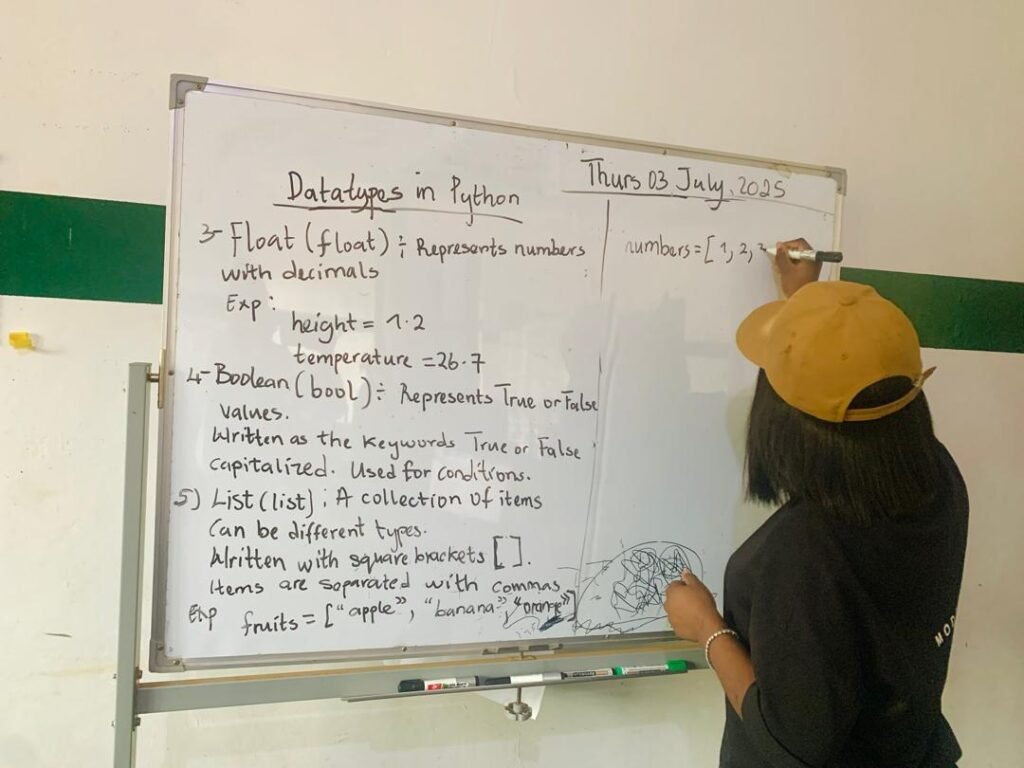 Datatypes in Python
3- Float (float) ÷ Represents numbers
with decimals
Exp:
height = 1.2
temperature = 26.7
4- Boolean (bool) ÷ Represents True or False
values.
Written as the keywords True or False
capitalized. Used for conditions.
5) List (list) : A collection of items
Can be different types.
Written with square brackets [ ].
Items are soparated with commas
Exp fruits = ["apple", "banana", "orange"]
Thurs 03 July, 2025
numbers = [1, 2,
MOD